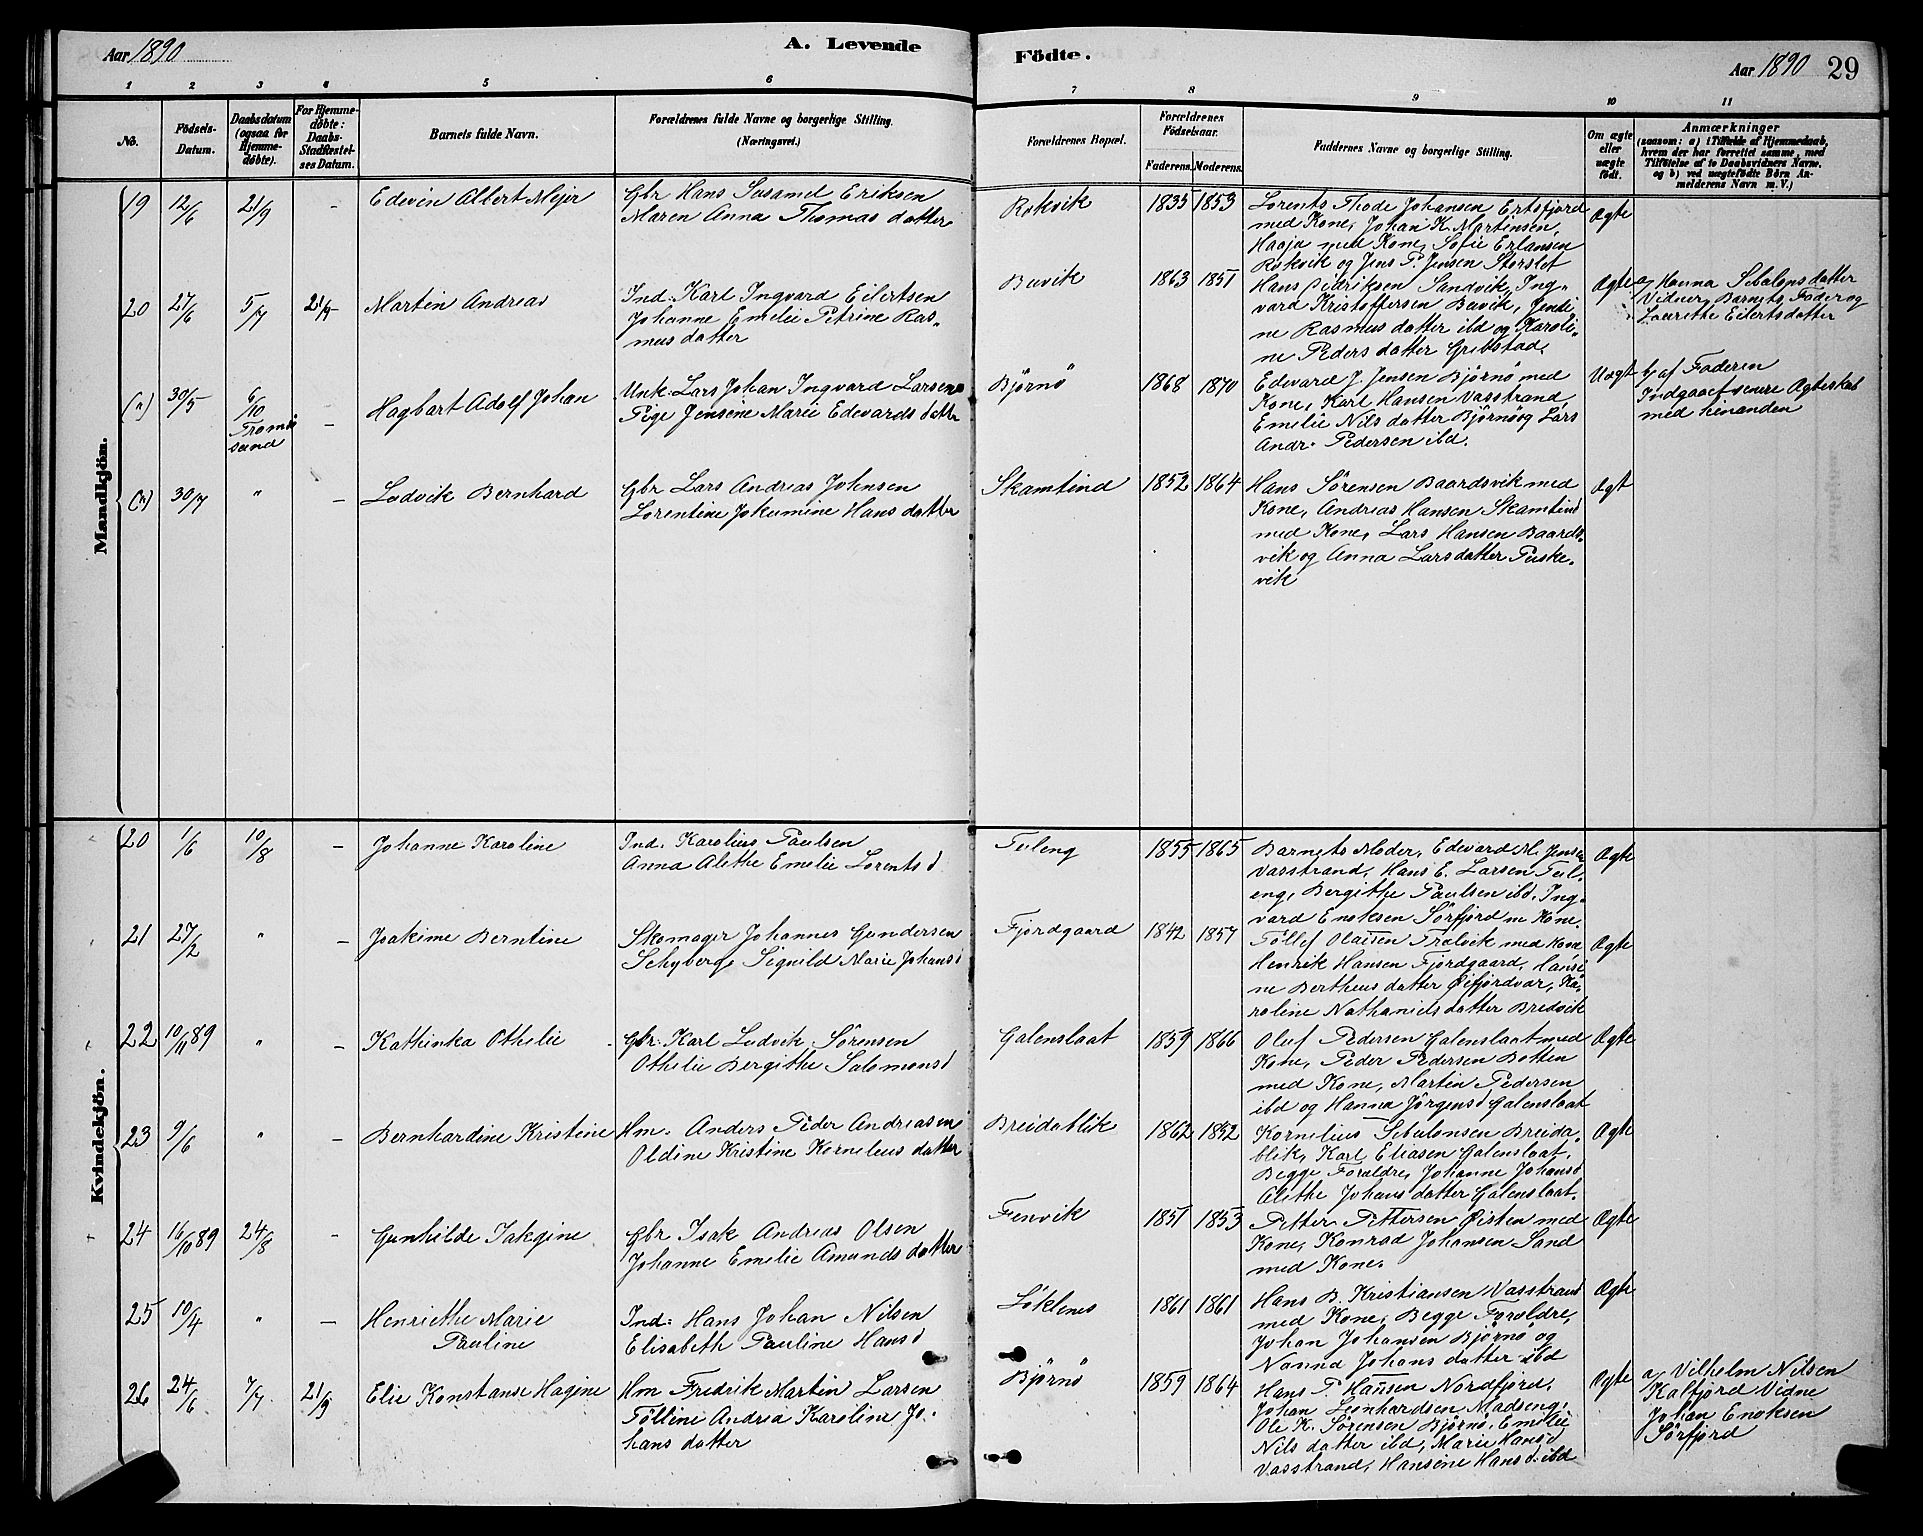 Aar 1890
A. Levende
Födte.
Aar 1890 29
1 2 3 4 5 6 7 8 9 10 11
No.
Födsels-
Datum.
Daabsdatum
(ogsaa for
Hjemme-
döbte).
For Hjemme-
döbte:
Daabs-
Stadfæstel-
ses Datum.
Barnets fulde Navn.
Forældrenes fulde Navne og borgerlige Stilling.
(Næringsvei.)
Forældrenes Bopæl.
Forældrenes
Födselsaar.
Faderens. Moderens.
Faddernes Navne og borgerlige Stilling.
Om ægte
eller
uægte
födt.
Anmærkninger
(saasom: a) i Tilfælde af Hjemmedaab,
hvem der har forrettet samme, med
Tilföielse af to Daabsvidners Navne,
og b) ved uægtefödte Börn An-
melderens Navn m. V.)
Mandkjön.
19 12/6 21/9 - Edevin Albert Mejer
Gbr Hans Susamel Eriksen
Maren Anna Thomas datter
Rekvik 1835 1853
Lorents Thode Johansen Ertsfjord
med Kone, Johan K. Martinsen,
Haaja med Kone, Sofie Erlansen
Rekvik og Jens P. Jensen Storslet
Ægte
20 27/6 5/7 21/9 Martin Andreas
Ind. Karl Ingvard Eilertsen
Johanne Emelie Petrine Ras-
mus datter
Buvik 1863 1851
Hans Didriksen Sandvik, Ing-
vard Kristoffersen Buvik, Jensi-
ne Rasmus datter ibd og Karoli-
ne Peders datter Grebstad.
Ægte
a, Hanna Sebalons datter
Vidner, Barnets Fader og
Laurethe Eilertsdatter
(") 30/5 6/10 Tromö
sund - Hagbart Adolf Johan
Unk. Lars Johan Ingvard Larsen
Pige Jensine Marie Edevards datter
Björnö 1868 1870
Edevard J. Jensen Björnö med
Kone, Karl Hansen Vasstrand
Emelie Nils datter Björnö og Lars
Andr. Pedersen ibd.
Uægt
b, af Faderen
Indgaaet senere Ægteskab
med hinanden
(") 30/7 " - Ludvik Bernhard
Gbr Lars Andreas Johnsen
Lorentine Jokumine Hans datter
Skamtind 1852 1864
Hans Sörensen Baardsvik med
Kone, Andreas Hansen Skamtind
med Kone, Lars Hansen Baards-
vik og Anna Larsdatter Peiske-
vik
Ægt
Kvindekjön.
20 1/6 10/8 - Johanne Karoline
Ind. Karolius Paulsen
Anna Alethe Emelie Lorents d
Tuleng 1855 1865
Barnets Moder, Edevard M. Jensen
Vasstrand, Hans E. Larsen Tul-
eng, Bergithe Paulsen ibd. Ing-
vard Enoksen Sörfjord m Kone.
Ægte
21 27/2 " - Joakime Berntine
Skomager Johannes Gundersen
Schyberg, Siguild Marie Johans d
Fjordgaard 1842 1857
Tóllef Olaisen Trælvik med Kone
Henrik Hansen Fjordgaard, Hansi-
ne Bertheus datter Öifjordvær, Ka-
roline Nathaniels datter Bredvik
Ægte
22 10/11 89 " - Kathinka Othelie
Gbr. Karl Ludvik Sörensen
Othelie Bergithe Salomons d
Galenslaat 1859 1866
Oluf Pedersen Galenslaat med
Kone, Peder Pedersen Botten
med Kone, Martin Pedersen
ibd og Hanna Jörgens d Galenslaat
Ægte
23 9/6 " - Bernhardine Kristine
Hm. Anders Peder Andreasen
Oldine Kristine Kornelius datter
Breidablik 1862 1852
Kornelius Sebulonsen Breida-
blik, Karl Eliasen Galenslaat.
Begge Forældre, Johanne Johans d
Alethe Johans datter Galenslaat.
Ægte
24 16/10 89 24/8 - Gunhilde Jakgine
Gbr Isak Andreas Olsen
Johanne Emelie Amunds datter
Finvik 1851 1853
Petter Pettersen Öisten med
Kone, Konrad Johansen Sand
med Kone.
Ægte
25 10/4 " - Henriethe Marie
Pauline
Ind. Hans Johan Nilsen
Elisabeth Pauline Hans d
Löklenes 1861 1861
Hans B. Kristiansen Vasstrand
med Kone, Begge Foroldre,
Johan Johansen Björnö og
Nanna Johans datter ibd
Ægte
26 24/6 7/7. 21/9 Elie Konstanse Hagine
Hm Fredrik Martin Larsen
Tölline Andrea Karoline Jo-
hans datter
Björnö 1859 1864
Hans P. Hansen Nordfjord.
Johan Leonhardsen Madseng,
Ole K. Sörensen Björnö, Emelie
Nils datter ibd, Marie Hans d
Vasstrand, Hansine Hans d. ibd
Ægte
a, Vilhelm Nilsen
Kalfjord Vidne
Johan Enoksen
Sörfjord